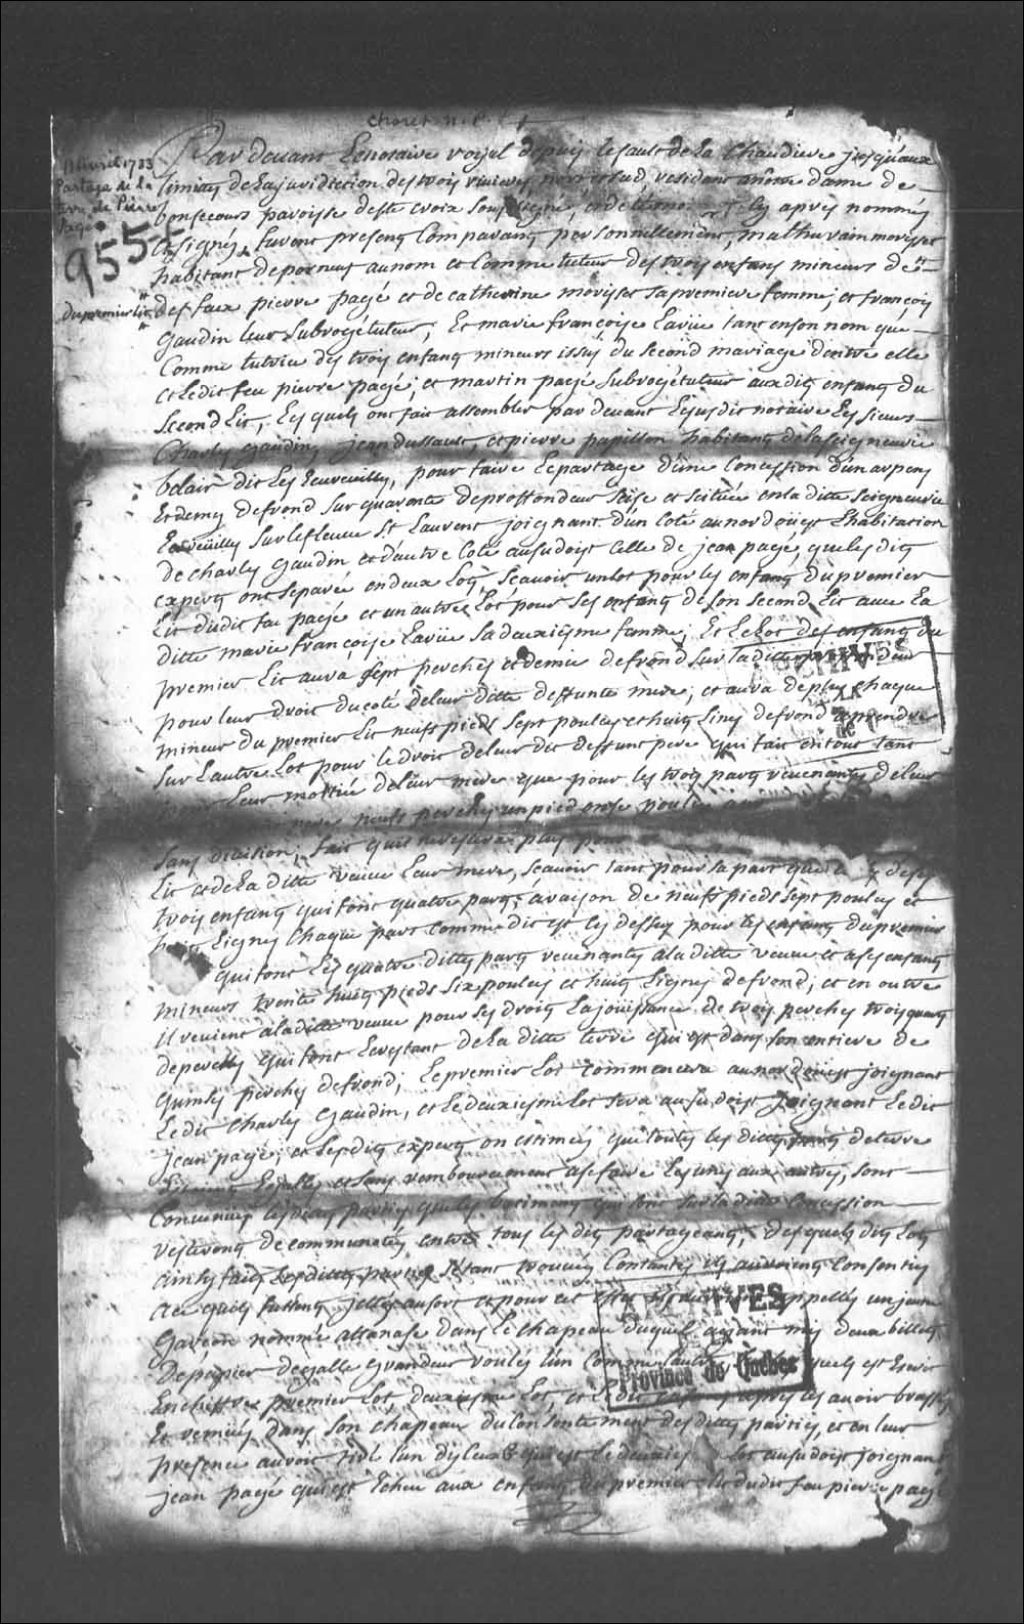 choret n.
avril 1733
Partage de la
terre de Pierre
pagé
955
Par devant Lenotaire royal depuis lesault de la Chaudiere jusquaux
limittes de la juridiction des trois rivieres nort et sud, residant a notre dame de
bonsecours paroisse de ste croix soussigné, et de temoins cy aprés nommés
et signés, furent presents Comparants personnellement, mathurain morisset
habitant deporneuf au nom et Comme tuteur des trois enfans mineurs de
du premier lit deffeux pierre pagé et de catherine morisset sa premiere femme; et françois
gaudin leur subrogé tuteur, Et marie françoise Lariue tant en son nom que
Comme tutrice des trois enfans mineurs issus du second mariage dentre elle
et ledit feu pierre pagé; et martin pagé subrogé tuteur aux dits enfans du
second Lit, Lesquels ont fait assembler par devant Lesusdit notaire Les sieurs
Charles gaudin, jean dussault, et pierre papillon habitans de la seigneurie
belair dit Les Eureuills, pour faire Lepartage dune Concession dun arpent
Et demy defrond sur quarante deproffondeur sise et scituée en la ditte seigneurie
Eureuills sur lefleuve St Laurent joignant dun coté au nordouest Lhabitation
de charles gaudin et dautre coté ausudoist celle de jean pagé, que lesdits
experts ont separée en deux Lots, scavoir un lot pour les enfans du premier
Lit dudit feu pagé et un autre Lot pour ses enfans de son second Lit avec La
ditte marie françoise Lariue sa deuxiesme femme; Et Le Lot des enfans du
premier Lit aura sept perches et demie defrond sur la ditte proffondeur
pour leur droit ducoté deleur ditte deffunte mere; et aura deplus chaque
mineur du premier Lit neufs pieds sept pouces et huit Lines defrond aprendre
sur Lautre Lot pour le droit deleur dit deffunt pere qui fait en tout tant
leur moitié deleur mere que pour les trois parts revenantes deleur
neufs perches un pied onse pouces
sans division; fait quil ne restera plus pour
Lit et de La ditte veuve leur mere, scavoir tant pour sa part que de ses
trois enfans qui font quatre parts, a raison de neufs pieds sept pouces et
huit Lignes Chaque part comme dit est cy dessus pour les enfans du premier
qui font Les quatre dittes parts revenantes a la ditte veuve et a ses enfans
mineurs trente huit pieds six pouces et huit Lignes defrond; et en outre
il revient a la ditte veuve pour ses droits La jouissance de trois perches trois quarts
deperches qui font Lerestant de La ditte terre qui est dans son entiere de
quinse perches defrond; Le premier Lot commencera au nordouest joignant
Ledit charles gaudin, et Le deuxiesme Lot sera ausudoist joignant Ledit
jean pagé; et Lesdits experts on estimés que toutes les dittes parts deterre
Egalles et sans rembourcement asefaire Les uns aux autres, sont
Convenues lesdittes parties que les batimens qui sont sur la ditte Concession
resterons de communauté entre tous les dits partageans, desquels dits Lots
ainsy faits Lesdittes parties sétant trouvées Contantes ils auroient Consentis
a ce quils fussent jettés au sort et pour cet effet appellé un jeune
garcon nommé attanase dans le chapeau duquel ayant mis deux billets
Depapier degalle grandeur roulés Lun comme Lautre quels est Ecrit
En chiffre premier Lot, deuxiesme Lot, et Ledit apres les avoir brassés
Et remués dans son chapeau du consentement des dittes parties, et en leur
presence auroit tiré Lun diceux qui est Le deuxiesme Lot ausudoist joignant
jean pagé qui est Echeu aux enfans du premier Lit dudit feu pierre pagé
ARCHIVES
de
ARCHIVES
Province de Québec